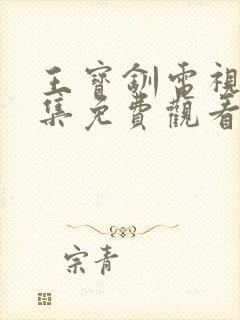 王寶釧電視
集免費觀看
宗青